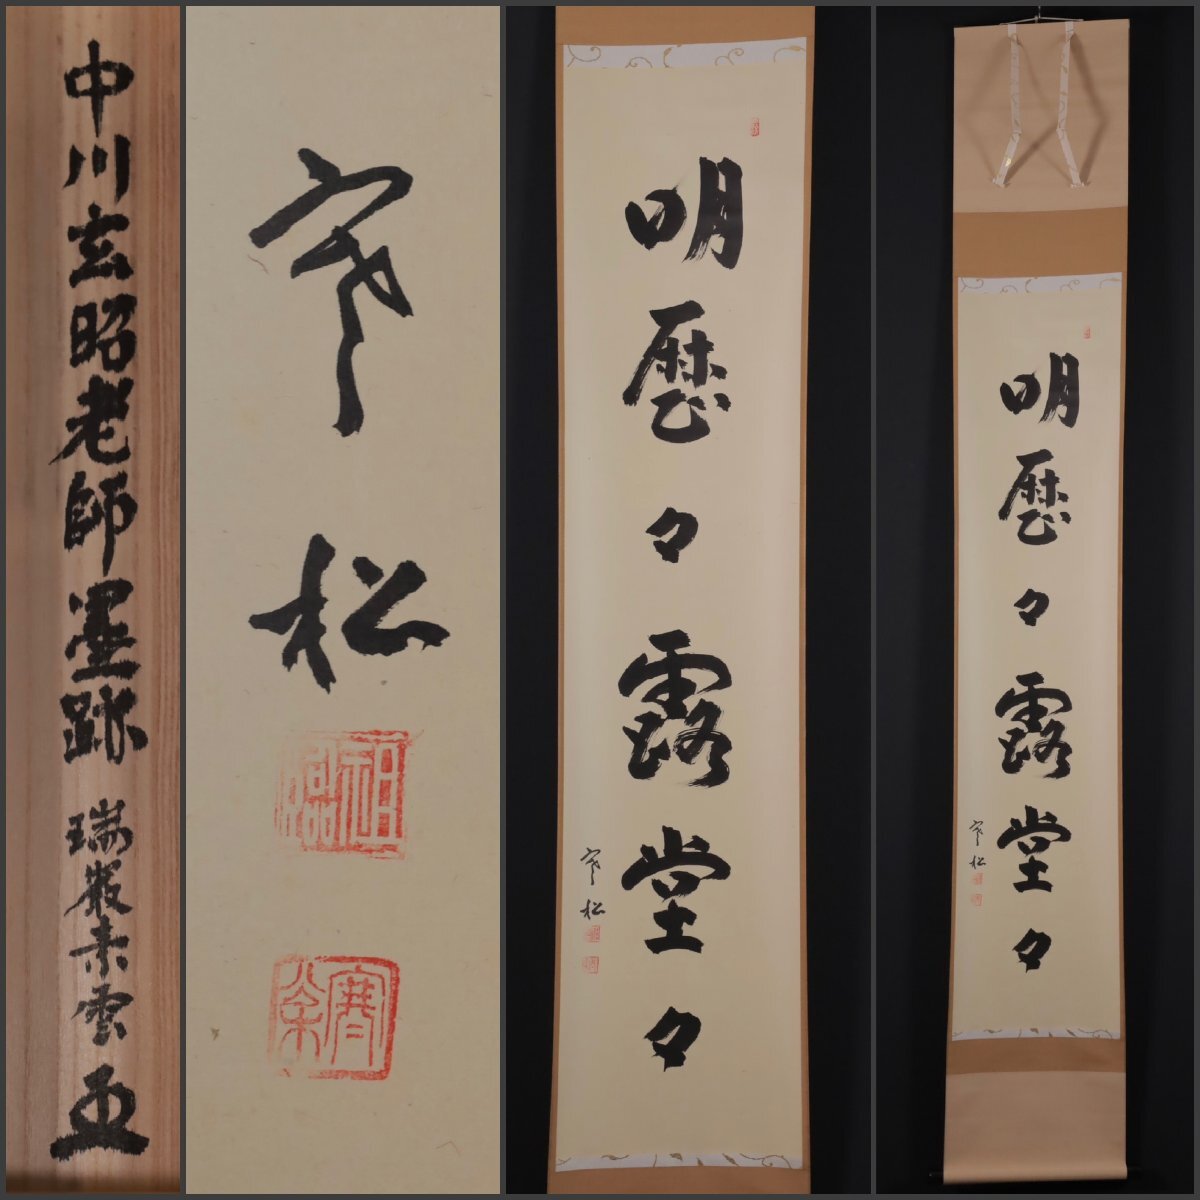 中川玄昭老師墨跡 瑞巌素雲
寒松
明歴々露堂々
寒松
明歴々露堂々
寒松